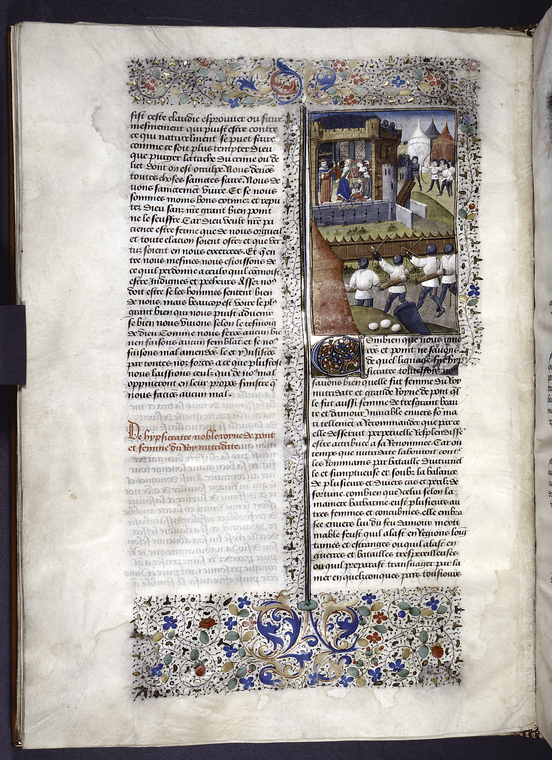 fist ceste claudie esprouver ou faire
mesmement qui puist estre contre
ce qui naturelment se puet faire
comme ce soit plus tempter dieu
que purger la tache du crime ou de
lict dont on est occulpe Nous devons
toutes choses sainctes faire Nous de
vons sainctement vivre Et se nous
sommes moins bons extimez et repu
tez dieu sans grant bien point
ne le seuffre Car dieu veult nre pa
cience estre ferme que de nous orgueil
et toute elacion soient ostez et que ver
tuz soient en nous exercees Et que en
tre nous mesmes nous esioissons de
ce quil perdonne a ceulx quil cognoist
estre indignes et pecheurs Assez no
doit estre se les hommes sentent bien
de nous mais beaucop est voire le plus
grant bien qui nous puist advenir
se bien nous vivons selon le tesmoig
de dieu Comme nous ferons aucun bien
bien facions aucun semblant et se no
faisons mal amender le et y musser
par toutes noz forces a ce que plustost
nous laissions ceulx qui de no mal
oppineront en leur propre sinistre que
nous facions aucun mal
De hypsicratee noble royne de pont
et femme du Roy mitridate
Combien que nous igno
rons et point ne saichons
de quel lignage fut hyp
sicratee toutesfois no
savons bien quelle fut femme du Roy
mitridate et grande Royne de pont quel
le fut aussi femme de tresgrant beau
te et damour Invincible envers so ma
ri tellement a Recommander que par ce
elle desservit perpetuelle Resplendisse
estre attribuee a sa Renommee Car ou
temps que mitridate labouroit cont
les Rommains par bataille diuturnel
le et sumptueuse et soubz la balance
de plusieurs et divers cas et peril de
fortune combien que icelui selon la
maniere barbarine eust plusieurs au
tres femmes et concubines elle embra
see envers lui du feu damour inexti
mable feust quil alast en regions loig
taines et estranges ou quil alast en
guerres et batailles tresperilleuses
ou quil preparast transnager par la
mer en quelconques pars tousiours